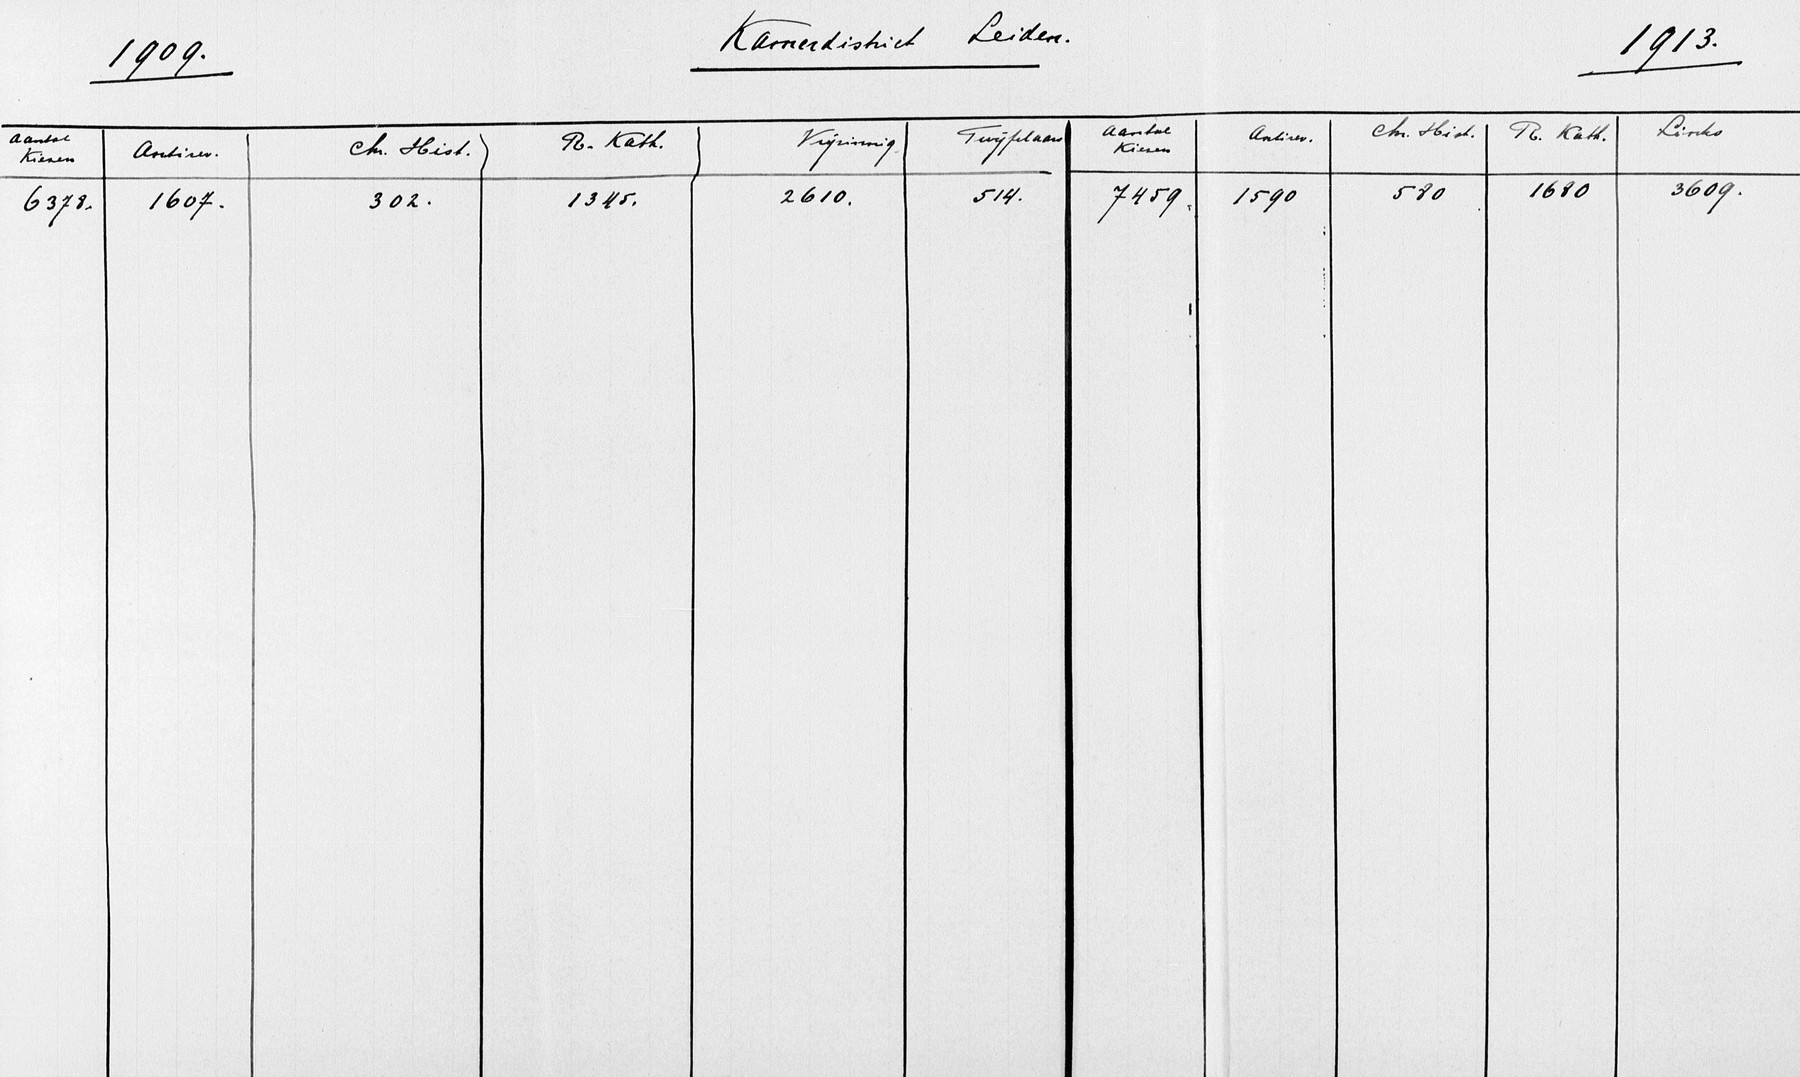 1909. Kamerdistrict Leiden. 1913.
Aantal Kiezers Antirev. Chr. Hist. R. Kath. Vrijzinnig. Twijfelaars Aantal Kiezers Antirev. Chr. Hist. R. Kath. Links
6378. 1607. 302. 1345. 2610. 514. 7459. 1590 580 1680 3609.